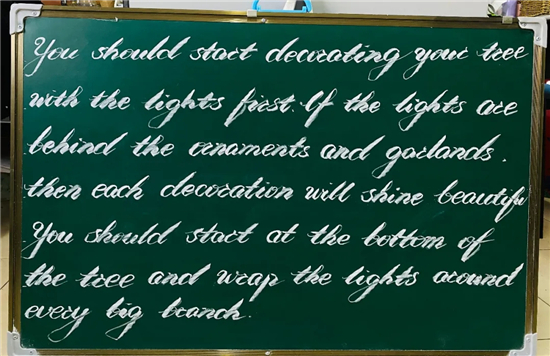 You should start decorating your tree
with the lights first. If the lights are
behind the ornaments and garlands.
then each decoration will shine beautiful
You should start at the bottom of
the tree and wrap the lights around
every big branch.